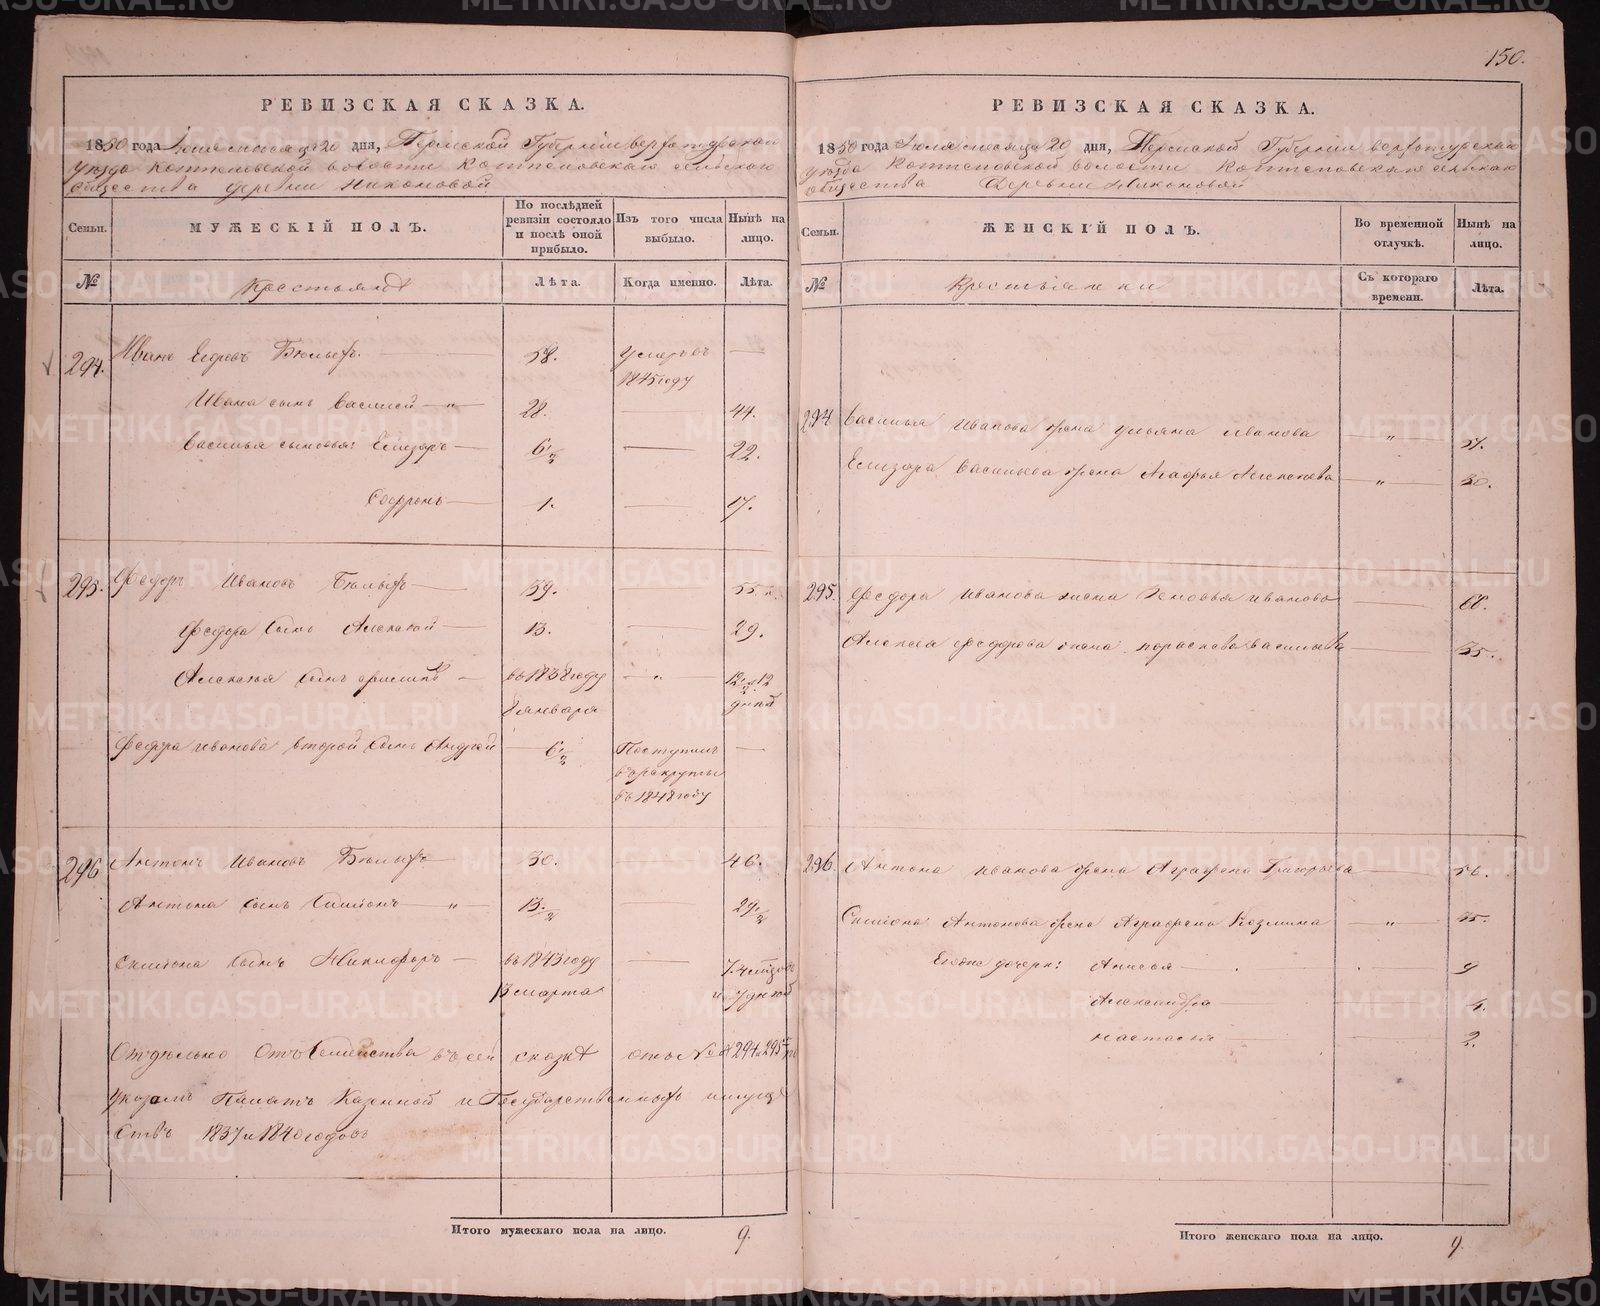 150.
РЕВИЗСКАЯ СКАЗКА.
1850 года Июля месяца 20 дня, Пермской Губернии верхотурскаго
уезда Коптеловской волости Коптеловскаго сельскаго
общества деревни Никоновой
Семьи.
МУЖЕСКІЙ ПОЛЪ.
По послѣдней ревизіи состояло и послѣ оной прибыло.
Изъ того числа выбыло.
Нынѣ на лицо.
№
Крестьяне
Лѣта.
Когда именно.
Лѣта.
294. Иванъ Егоровъ 58. умеръ въ 1845 году
Ивана сынъ Василей — " 28. — 44.
Василья сыновья: Елизаръ — 6 1/2 — 22.
Софронъ — 1. — 17.
295. Федоръ Ивановъ — 39. — 55.
Федора сынъ Алексей — 13. — 29.
Алексея сынъ — въ 1838 году — " 12 1/2 и 12
8 января дней
Федора Иванова второй сынъ Андрей — 6 1/2 Поступилъ —
въ рекруты
въ 1848 году
296 Антонъ Ивановъ — 30. — 46.
Антона сынъ Симионъ — " 13 1/2 — 29 1/2
Симиона сынъ Никифоръ — въ 1843 году — 7. 4 месяцовъ
13 марта и 7 дней
Отдельно отъ семейства въ сей сказке отъ № 294 и 295
указомъ Палатъ Казенной и Государственныхъ имуще
ствъ 1837 и 1840 годовъ
Итого мужескаго пола на лицо. 9.
РЕВИЗСКАЯ СКАЗКА.
1850 года Июля месяца 20 дня, Пермской Губернии верхотурскаго
уезда Коптеловской волости Коптеловскаго сельскаго
общества Деревни Никоновой
Семьи.
ЖЕНСКІЙ ПОЛЪ.
Во временной отлучкѣ.
Нынѣ на лицо.
№
Крестьянки
Съ котораго времени.
Лѣта.
294 Василья Иванова жена Ульяна Иванова — "
Елизара Васильева жена Агафья Алексеева — " 30.
295. Федора Иванова жена Зеновья Иванова
Алексея Федорова жена Парасковья Васильева — 35.
296. Антона Иванова жена Аграфена Григорьева — 56.
Симиона Антонова жена Аграфена Козмина — "
Ево же дочери: Анисья — 9
Александра — 4.
Настасья 2.
Итого женскаго пола на лицо. 9.
METRIKI.GASO-URAL.RU